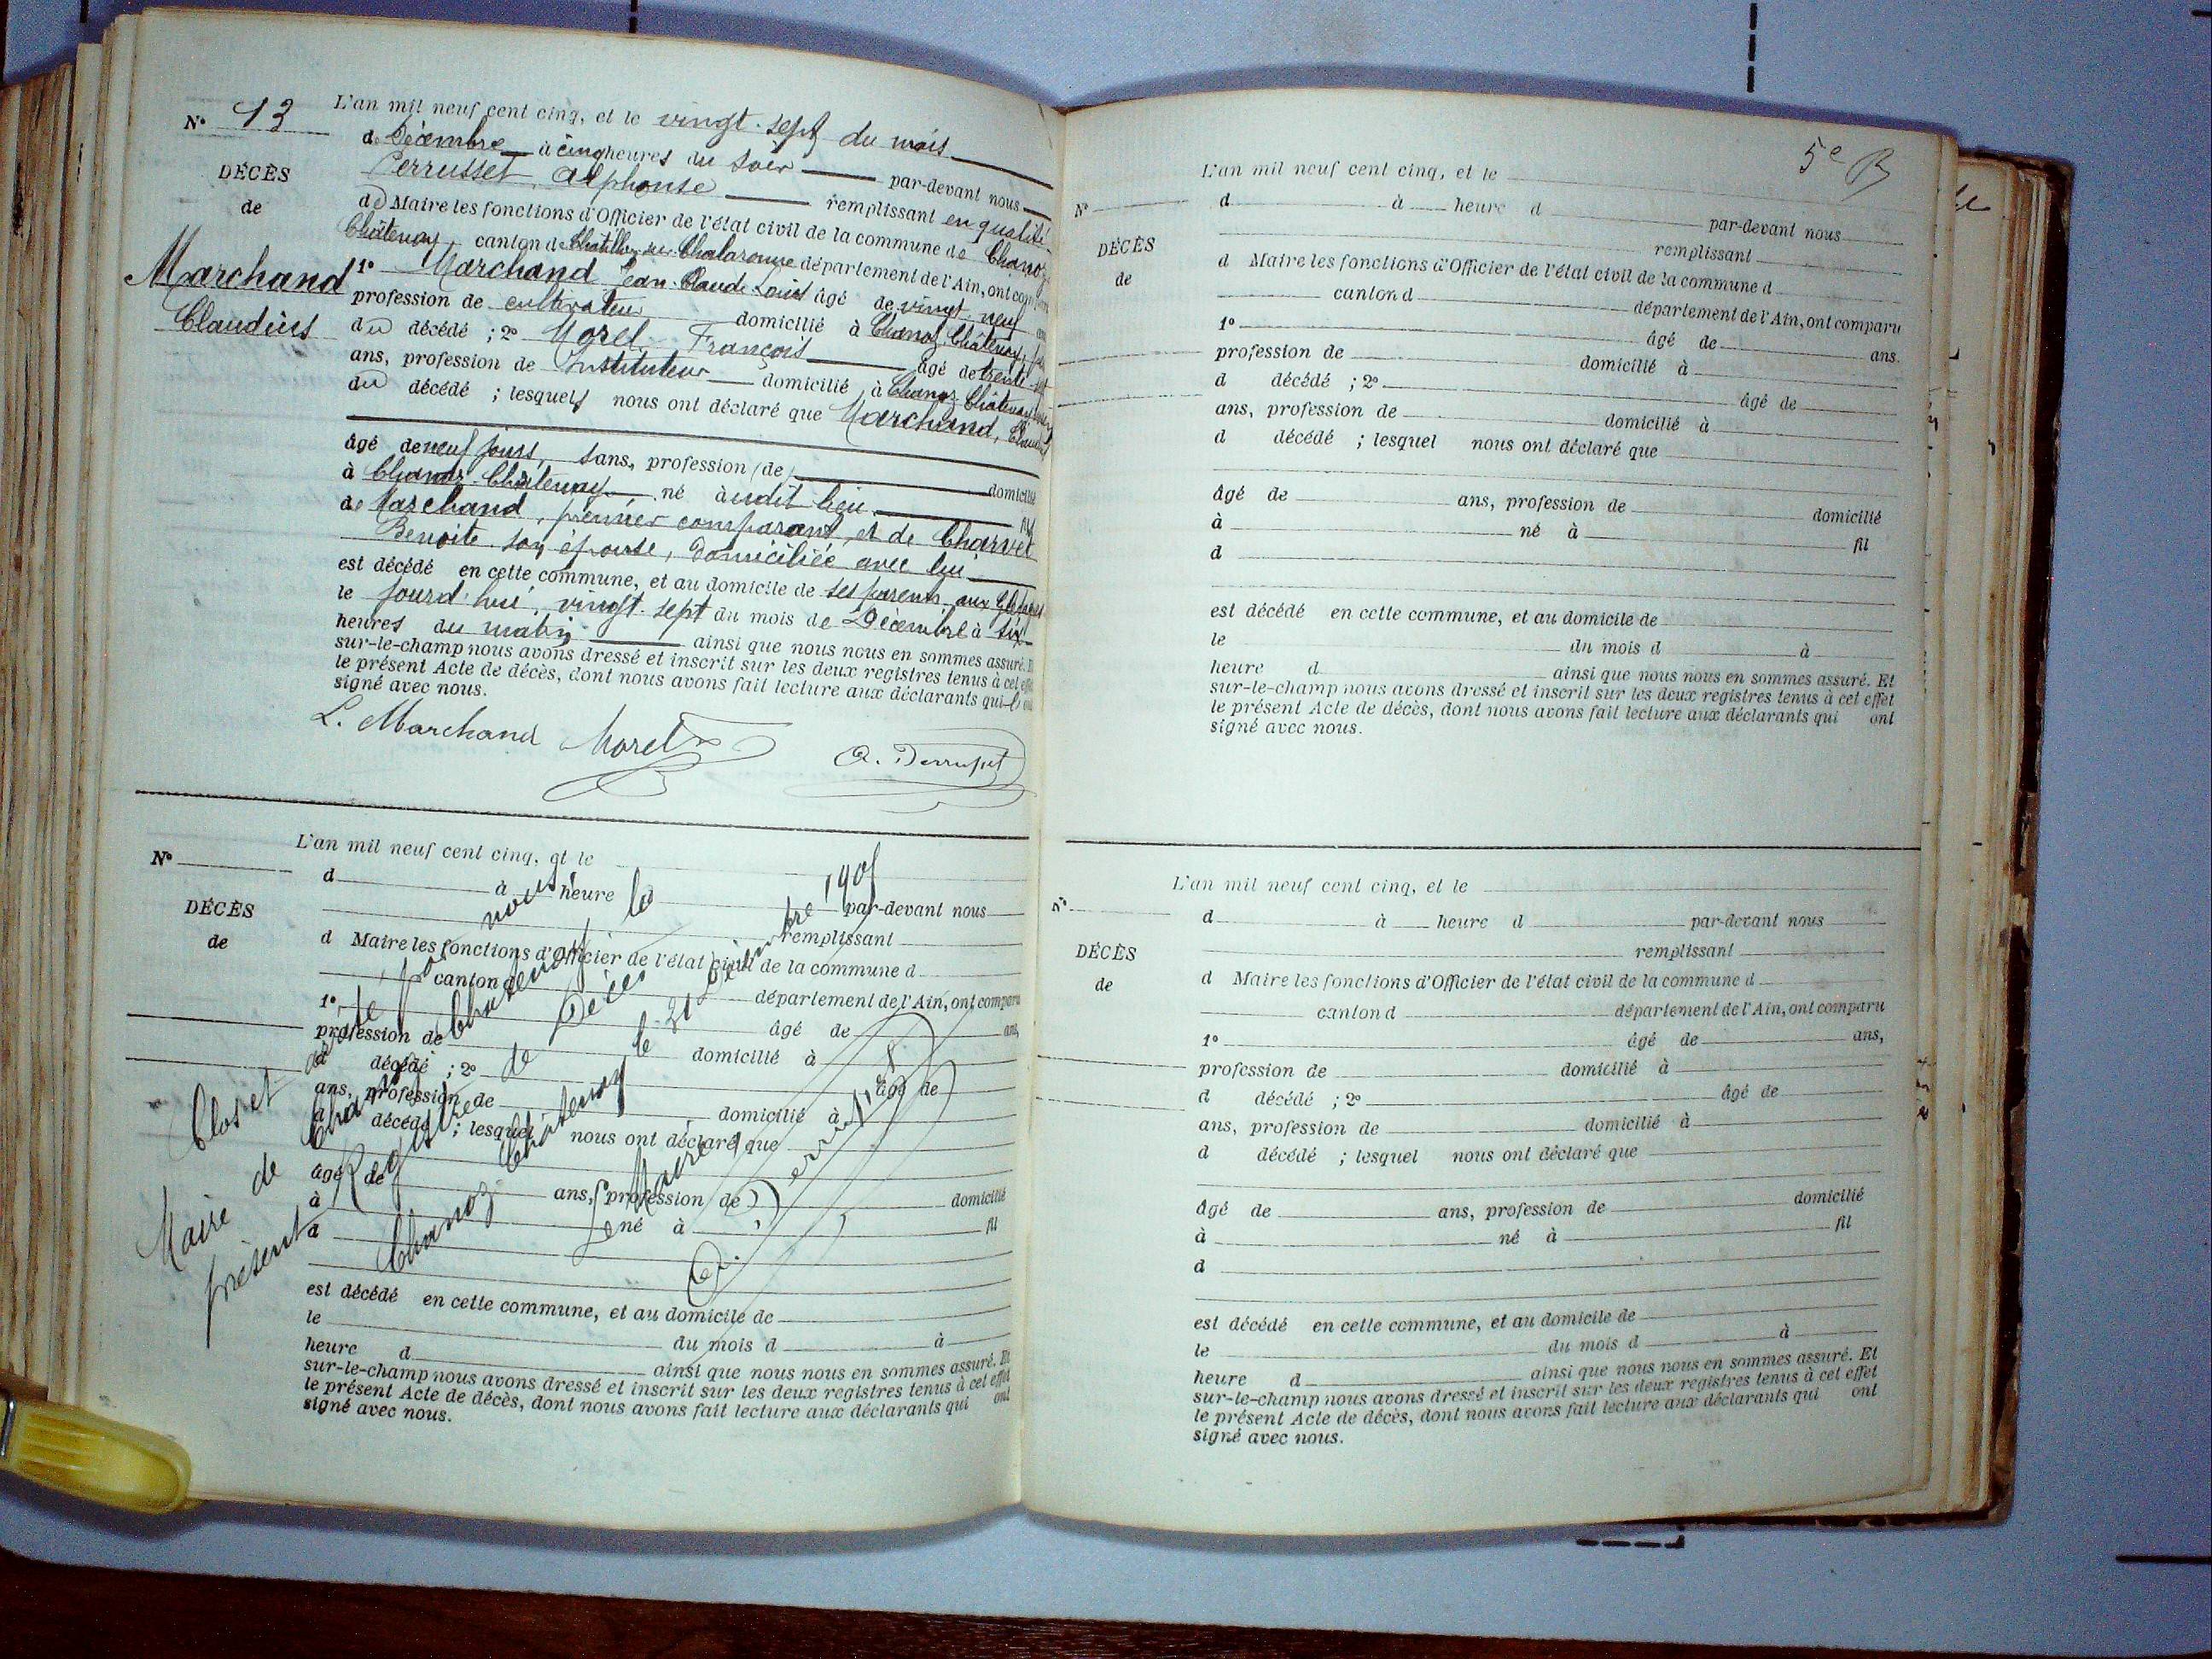 N° 13
DÉCÈS
de
Marchand
Claudius
L'an mil neuf cent cinq, et le vingt-sept du mois
de Décembre à cinq heures du soir par-devant nous
Perrusset, Alphonse remplissant en qualité
de Maire les fonctions d'Officier de l'état civil de la commune de Chanoz
Châtenay, canton de Châtillon-sur-Chalaronne département de l'Ain, ont comparu
1° Marchand Jean-Claude Louis âgé de vingt-neuf ans
profession de cultivateur domicilié à Chanoz-Châtenay,
du décédé ; 2° Morel François âgé de trente
ans, profession de Instituteur domicilié à Chanoz-Châtenay
du décédé ; lesquels nous ont déclaré que Marchand, Claudius
âgé de neuf jours, sans profession de domicilié
à Chanoz-Châtenay né audit lieu fils
de Marchand, premier comparant, et de Charvet
Benoite son épouse, domiciliée avec lui
est décédé en cette commune, et au domicile de ses parents, aux
le jourd'hui, vingt-sept du mois de Décembre à six
heures du matin ainsi que nous nous en sommes assuré. Et
sur-le-champ nous avons dressé et inscrit sur les deux registres tenus à cet effet
le présent Acte de décès, dont nous avons fait lecture aux déclarants qui ont
signé avec nous.
L. Marchand Morel A. Perrusset
N°
DÉCÈS
de
L'an mil neuf cent cinq, et le
d à heure d par-devant nous
remplissant
d Maire les fonctions d'Officier de l'état civil de la commune d
canton d département de l'Ain, ont comparu
1° âgé de ans,
profession de domicilié à
d décédé ; 2° âgé de
ans, profession de domicilié à
d décédé ; lesquel nous ont déclaré que
âgé de ans, profession de domicilié
à né à fil
d
est décédé en cette commune, et au domicile de
le du mois d à
heure d ainsi que nous nous en sommes assuré. Et
sur-le-champ nous avons dressé et inscrit sur les deux registres tenus à cet effet
le présent Acte de décès, dont nous avons fait lecture aux déclarants qui ont
signé avec nous.
Clos et arrêté par nous
Maire de Chanoz Châtenay le
présent Registre de Décès
Chanoz Châtenay le 31 Décembre 1905
Le Maire
A. Perrusset
5e B
N°
DÉCÈS
de
L'an mil neuf cent cinq, et le
d à heure d par-devant nous
remplissant
d Maire les fonctions d'Officier de l'état civil de la commune d
canton d département de l'Ain, ont comparu
1° âgé de ans.
profession de domicilié à
d décédé ; 2° âgé de
ans, profession de domicilié à
d décédé ; lesquel nous ont déclaré que
âgé de ans, profession de domicilié
à né à fil
d
est décédé en cette commune, et au domicile de
le du mois d à
heure d ainsi que nous nous en sommes assuré. Et
sur-le-champ nous avons dressé et inscrit sur les deux registres tenus à cet effet
le présent Acte de décès, dont nous avons fait lecture aux déclarants qui ont
signé avec nous.
N°
DÉCÈS
de
L'an mil neuf cent cinq, et le
d à heure d par-devant nous
remplissant
d Maire les fonctions d'Officier de l'état civil de la commune d
canton d département de l'Ain, ont comparu
1° âgé de ans,
profession de domicilié à
d décédé ; 2° âgé de
ans, profession de domicilié à
d décédé ; lesquel nous ont déclaré que
âgé de ans, profession de domicilié
à né à fil
d
est décédé en cette commune, et au domicile de
le du mois d à
heure d ainsi que nous nous en sommes assuré. Et
sur-le-champ nous avons dressé et inscrit sur les deux registres tenus à cet effet
le présent Acte de décès, dont nous avons fait lecture aux déclarants qui ont
signé avec nous.